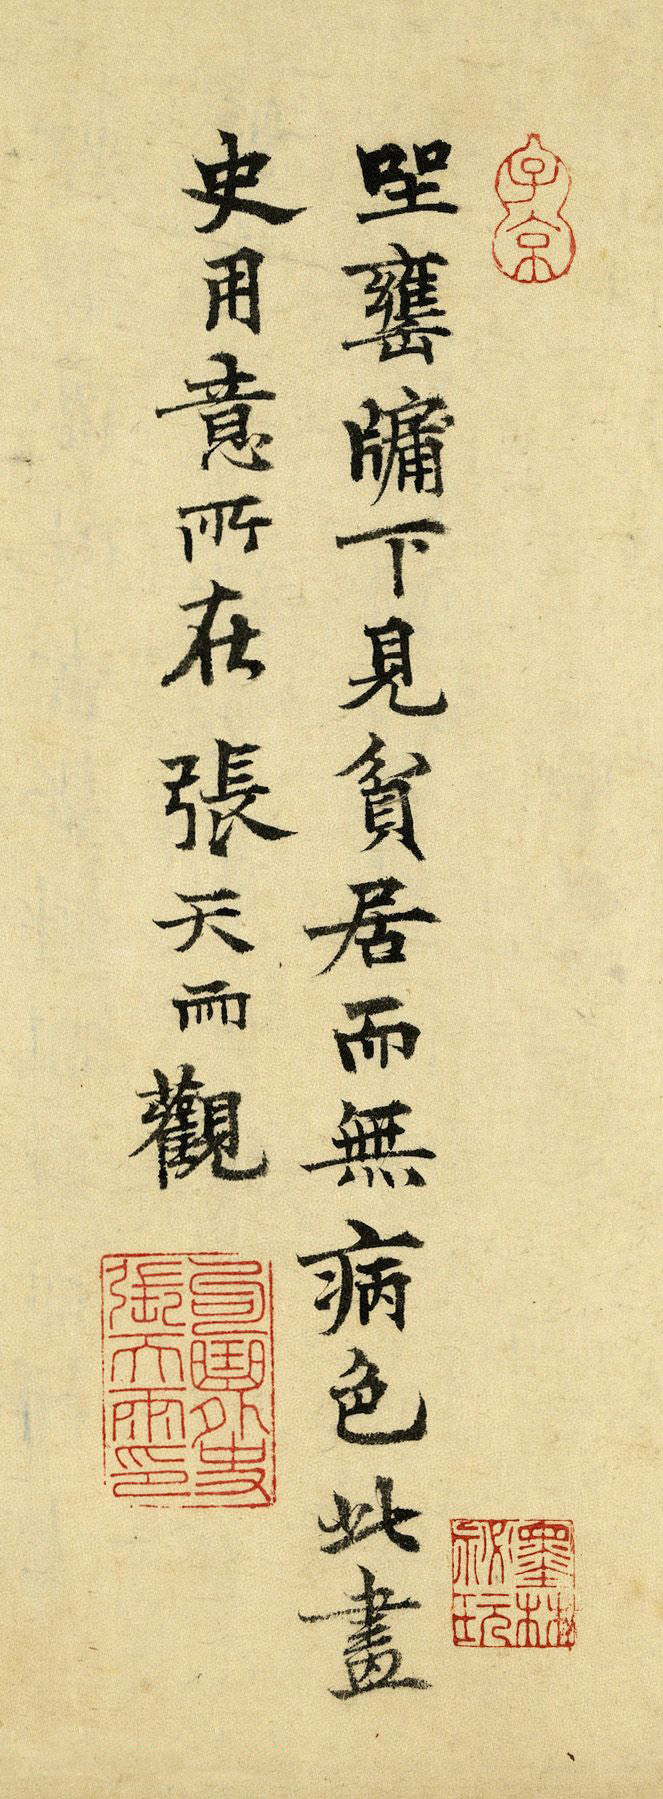 子京
坐甕牖下見貧居而無病色此畫
史用意所在 張天雨觀
句曲外史張天雨印
墨林祕玩